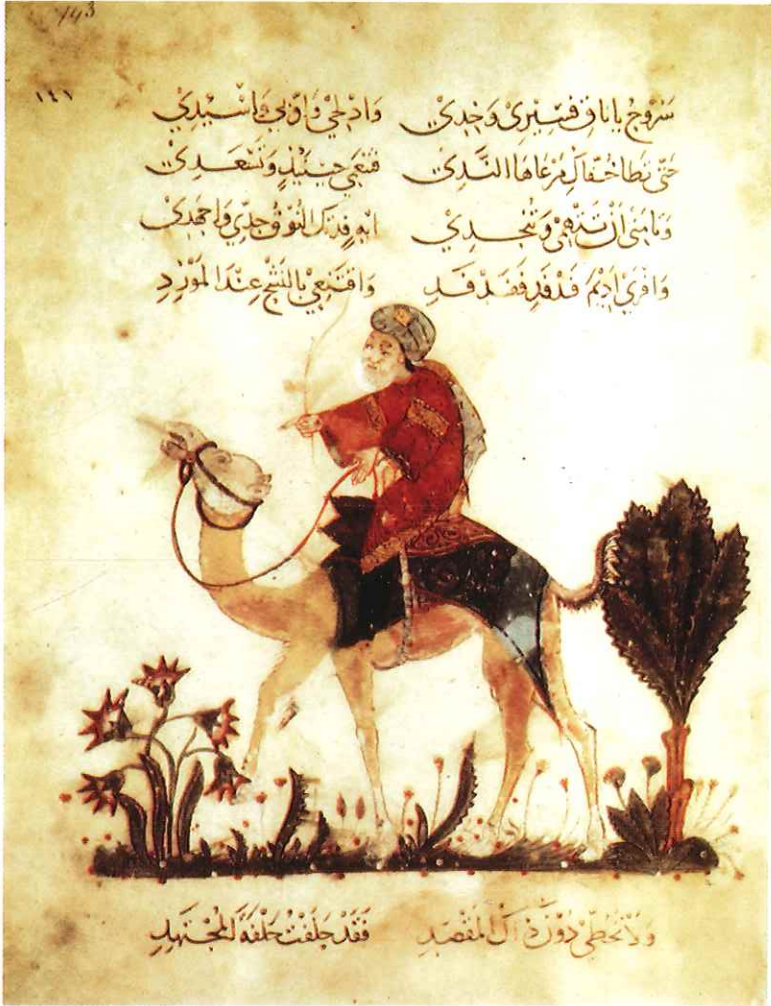 143
١٤١
سروج يا ناق فسيري وخدي وادلجي واوبي واسيدي
حتى تطا خفاك مرعاها الندي فتنعمي حينيذ وتسعدي
وتامني ان تتهمي وتنجدي ايه فدتك النوق جدي واجهدي
وافري اديم فدفد ففدفد واقتنعي بالنشح عند المورد
ولا تحطي دون ذاك المقصد فقد حلفت حلفة المجتهد